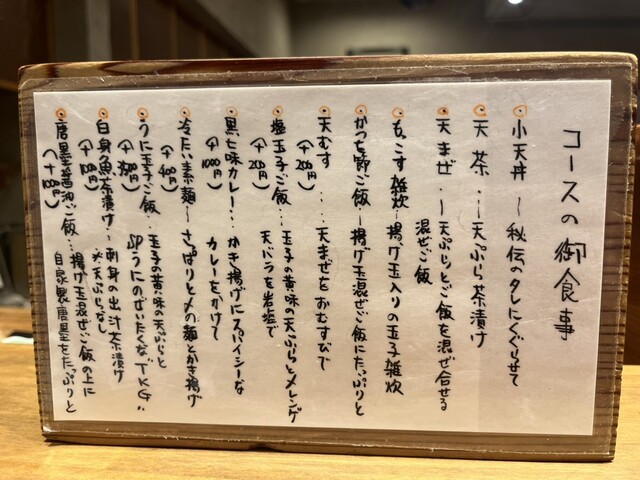 コースの御食事
小天丼 〜 秘伝のタレにくぐらせて
天茶 … 天ぷら茶漬け
天まぜ … 天ぷらとご飯を混ぜ合せる
混ぜご飯
もっこす雑炊 … 揚げ玉入りの玉子雑炊
かつを節ご飯 … 揚げ玉混ぜご飯にたっぷりと
天むす … 天まぜをおむすびで
(+200円)
塩玉子ご飯 … 玉子の黄味の天ぷらとメレンゲ
(+200円) 天バラを岩塩で
黒七味カレー … かき揚げにスパイシーな
(+1000円) カレーをかけて
冷たい素麺 〜 さっぱりと〆の麺とかき揚げ
(+400円)
うに玉子ご飯 … 玉子の黄味の天ぷらと
SPうにのぜいたくな"TKG"
白身魚茶漬け 〜 刺身の出汁茶漬け
※天ぷらなし
唐墨醤油ご飯 … 揚げ玉混ぜご飯の上に
自家製唐墨をたっぷりと